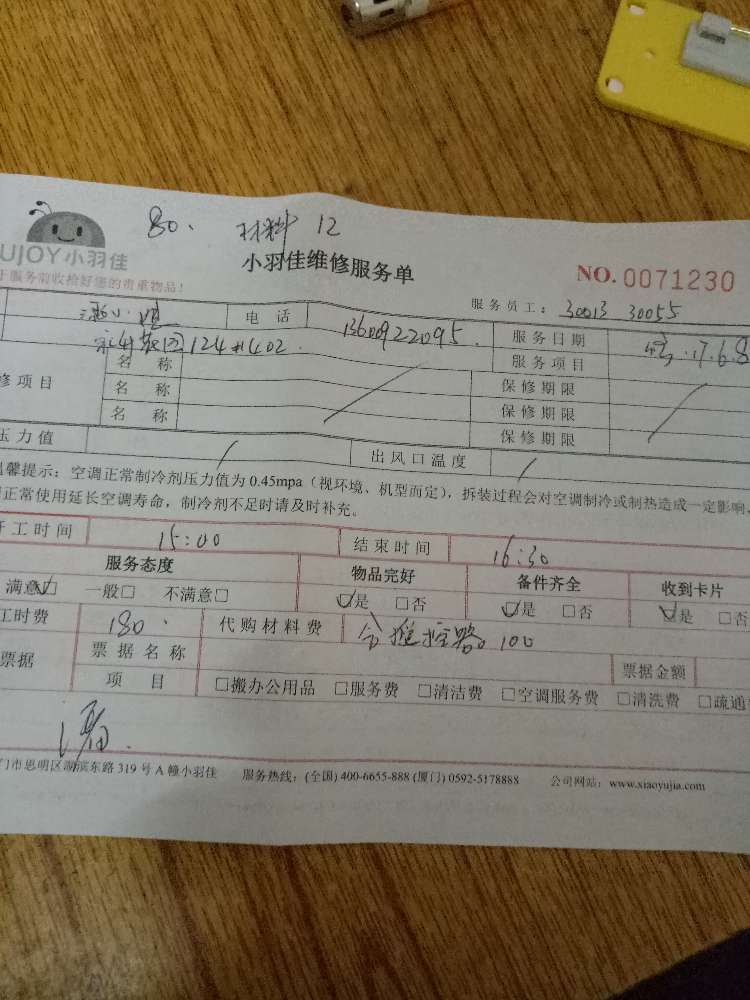 80. 材料 12
UJOY小羽佳
小羽佳维修服务单
NO. 0071230
于服务前收检好您的贵重物品！
服务员工：30013 30055
电 话 13600922095. 服务日期 17.6.8
124#402 服务项目
修项目 名 称 保修期限
名 称 保修期限
名 称 保修期限
压力值 出风口温度
温馨提示：空调正常制冷剂压力值为 0.45mpa（视环境、机型而定），拆装过程会对空调制冷或制热造成一定影响，
正常使用延长空调寿命，制冷剂不足时请及时补充。
开工时间 15:00 结束时间 16:30
服务态度 物品完好 备件齐全 收到卡片
满意☑ 一般□ 不满意□ ☑是 □否 ☑是 □否 ☑是 □否
工时费 180. 代购材料费 100
票据 票据名称 票据金额
项 目 □搬办公用品 □服务费 □清洁费 □空调服务费 □清洗费 □疏通
门市思明区湖滨东路 319 号 A 幢小羽佳 服务热线：(全国) 400-6655-888 (厦门) 0592-5178888 公司网站：www.xiaoyujia.com